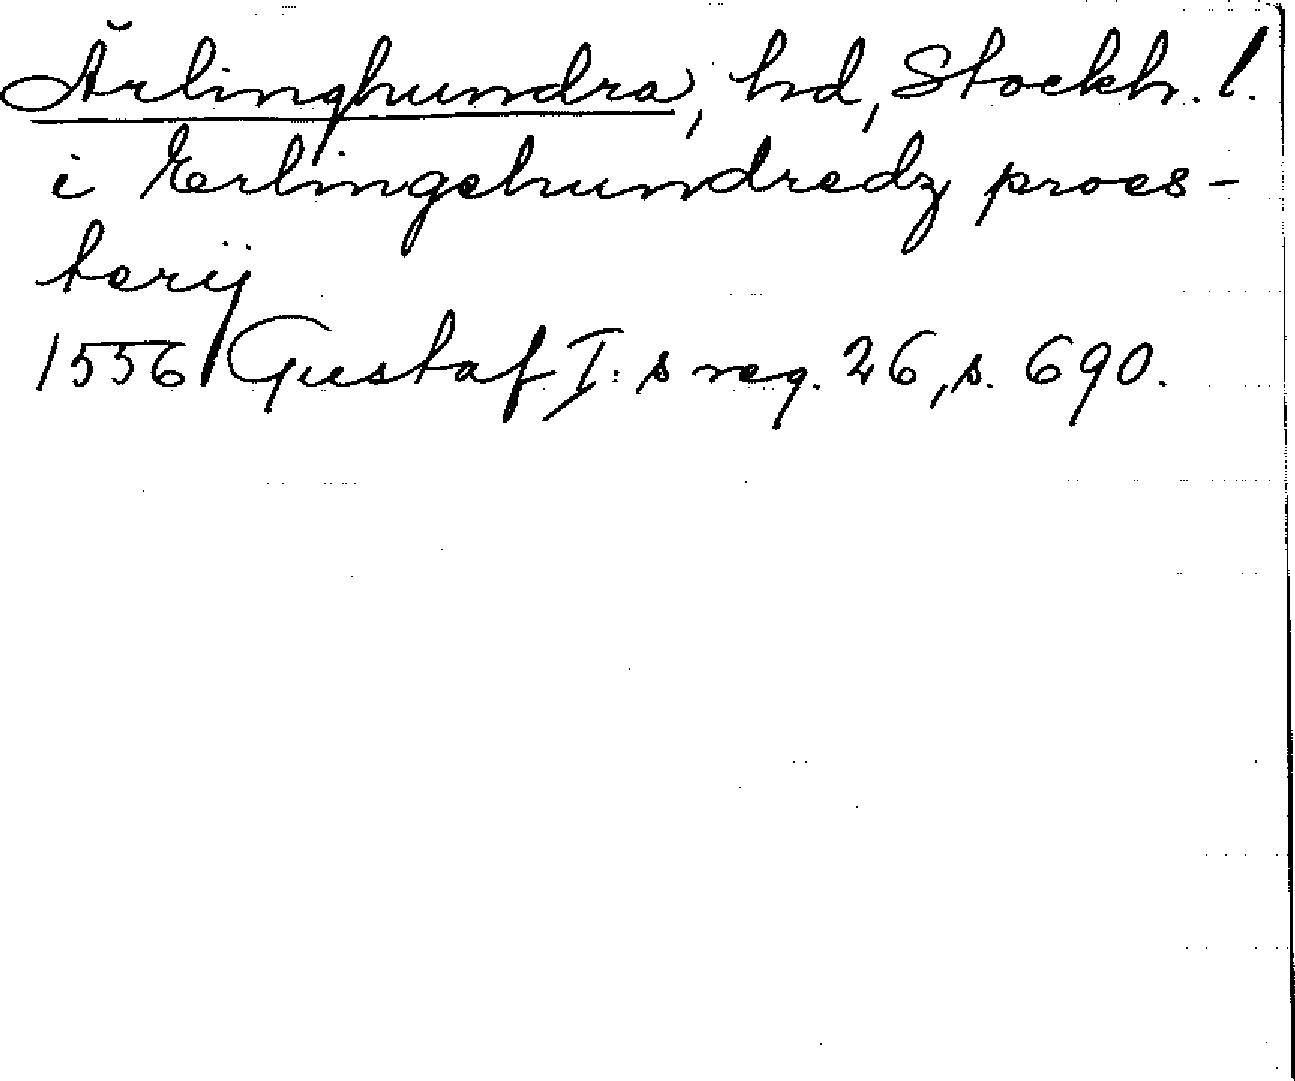 Ärlinghundra, hd, Stockh. l.
i Erlingehundredz proes-
terij
1556 Gustaf I:s reg. 26, s. 690.